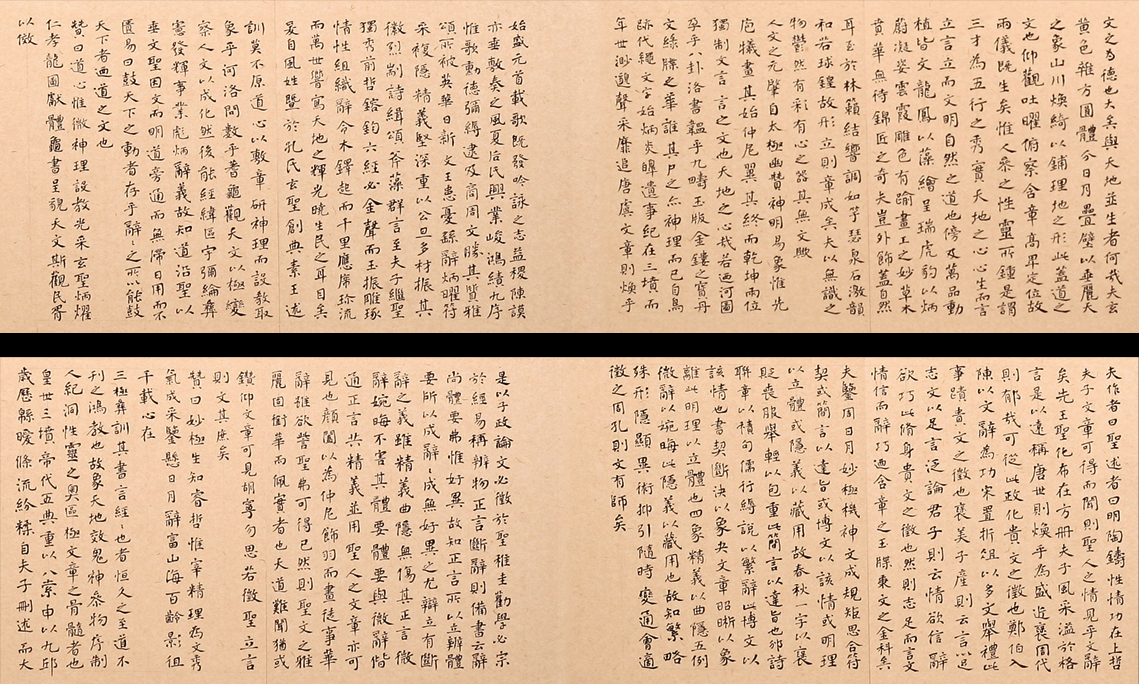 文之為德也大矣與天地並生者何哉夫玄
黃色雜方圓體分日月疊璧以垂麗天
之象山川煥綺以鋪理地之形此蓋道之
文也仰觀吐曜俯察含章高卑定位故
兩儀既生矣惟人參之性靈所鍾是謂
三才為五行之秀實天地之心心生而言
立言立而文明自然之道也傍及萬品動
植皆文龍鳳以藻繪呈瑞虎豹以炳
蔚凝姿雲霞雕色有踰畫工之妙草木
賁華無待錦匠之奇夫豈外飾蓋自然
耳至於林籟結響調如竽瑟泉石激韻
和若球鍠故形立則章成矣夫以無識之
物鬱然有彩有心之器其無文歟
人文之元肇自太極幽贊神明易象惟先
庖犧畫其始仲尼翼其終而乾坤兩位
獨制文言言之文也天地之心哉若迺河圖
孕乎八卦洛書韞乎九疇玉版金鏤之寶丹
文綠牒之華誰其尸之亦神理而已自鳥
跡代繩文字始炳炎皞遺事紀在三墳而
年世渺邈聲采靡追唐虞文章則煥乎
始盛元首載歌既發吟詠之志益稷陳謨
亦垂敷奏之風夏后氏興業峻鴻績九序
惟歌勳德彌縟逮及商周文勝其質雅
頌所被英華日新文王患憂繇辭炳曜符
采複隱精義堅深重以公旦多材振其
徽烈剬詩緝頌斧藻群言至夫子繼聖
獨秀前哲鎔鈞六經必金聲而玉振雕琢
情性組織辭令木鐸起而千里應席珍流
而萬世響寫天地之輝光曉生民之耳目矣
爰自風姓暨於孔氏玄聖創典素王述
訓莫不原道心以敷章研神理而設教取
象乎河洛問數乎蓍龜觀天文以極變
察人文以成化然後能經緯區宇彌綸彝
憲發輝事業彪炳辭義故知道沿聖以
垂文聖因文而明道旁通而無滯日用而不
匱易曰鼓天下之動者存乎辭〻之所以能鼓
天下者迺道之文也
贊曰道心惟微神理設教光采玄聖炳燿
仁孝龍圖獻體龜書呈貌天文斯觀民胥
以傚
夫作者曰聖述者曰明陶鑄性情功在上哲
夫子文章可得而聞則聖人之情見乎文辭
矣先王聖化布在方冊夫子風采溢於格
言是以遠稱唐世則煥乎為盛近褒周代
則郁哉可從此政化貴文之徵也鄭伯入
陳以文辭為功宋置折俎以多文舉禮此
事蹟貴文之徵也褒美子產則云言以足
志文以足言泛論君子則云情欲信辭
欲巧此脩身貴文之徵也然則志足而言文
情信而辭巧迺含章之玉牒秉文之金科矣
夫鑒周日月妙極機神文成規矩思合符
契或簡言以達旨或博文以該情或明理
以立體或隱義以藏用故春秋一字以褒
貶喪服舉輕以包重此簡言以達旨也邠詩
聯章以積句儒行縟說以繁辭此博文以
該情也書契斷決以象夬文章昭晰以象
離此明理以立體也四象精義以曲隱五例
微辭以婉晦此隱義以藏用也故知繁略
殊形隱顯異術抑引隨時變通會適
徵之周孔則文有師矣
是以子政論文必徵於聖稚圭勸學必宗
於經易稱辨物正言斷辭則備書云辭
尚體要弗惟好異故知正言所以立辯體
要所以成辭〻成無好異之尤辯立有斷
辭之義雖精義曲隱無傷其正言微
辭婉晦不害其體要體要與微辭偕
通正言共精義並用聖人之文章亦可
見也顏闔以為仲尼飾羽而畫徒事華
辭雖欲訾聖弗可得已然則聖文之雅
麗固銜華而佩實者也天道難聞猶或
鑽仰文章可見胡寧勿思若徵聖立言
則文其庶矣
贊曰妙極生知睿哲惟宰精理為文秀
氣成采鑒懸日月辭富山海百齡影徂
千載心在
三極彝訓其書言經〻也者恒久之至道不
刊之鴻教也故象天地效鬼神參物序制
人紀洞性靈之奧區極文章之骨髓者也
皇世三墳帝代五典重以八索申以九邱
歲歷緜曖條流紛糅自夫子刪述而大